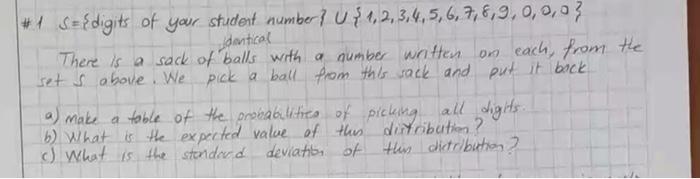 #1 S={digits of your student number} U {1,2,3,4,5,6,7,8,9,0,0,0}
identical
There is a sack of balls with a number written on each, from the
set S above. We pick a ball from this sack and put it back
a) make a table of the probabilities of picking all digits.
b) What is the expected value of this distribution?
c) What is the standard deviation of this distribution?